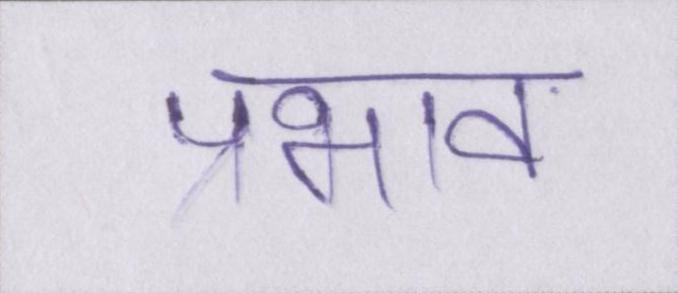 प्रभाव